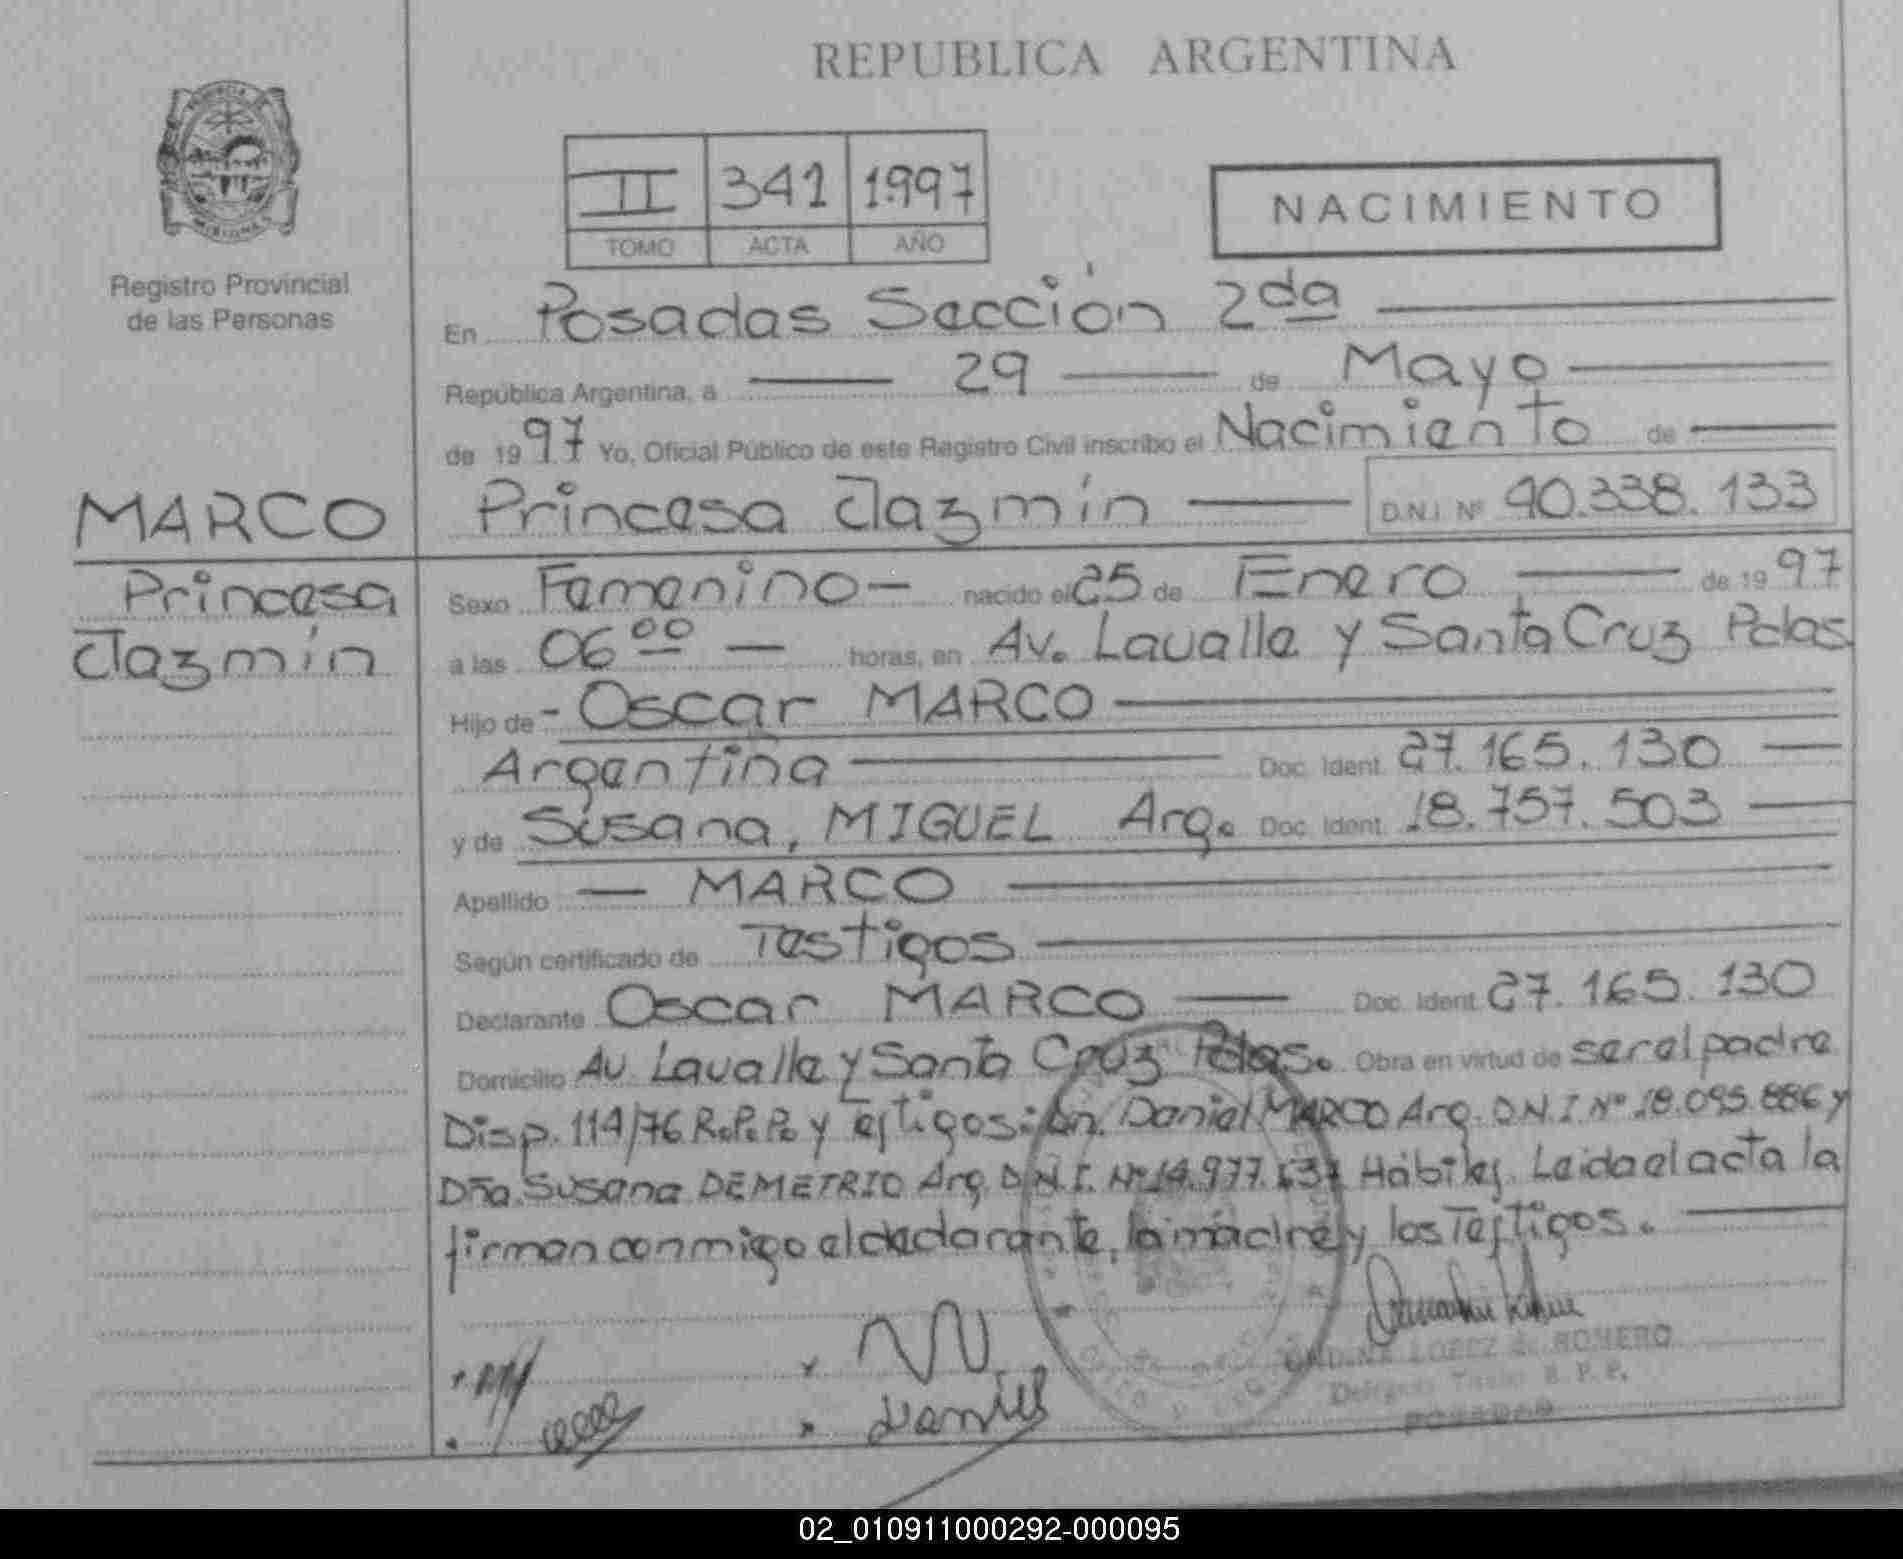 REPUBLICA ARGENTINA
II 341 1997
TOMO ACTA AÑO
NACIMIENTO
Registro Provincial
de las Personas
En Posadas Sección 2da
República Argentina, a 29 de Mayo
de 1997 Yo, Oficial Público de este Registro Civil inscribo el Nacimiento de
MARCO
Princesa Jazmín D.N.I. Nº 40.338.133
Princesa
Jazmín
Sexo Femenino - nacido el 25 de Enero de 1997
a las 06 00 horas, en Av. Lavalle y Santa Cruz Pdas
Hijo de - Oscar MARCO
Argentina Doc. Ident. 27.165.130
y de Susana, MIGUEL Arg. Doc. Ident. 18.757.503
Apellido MARCO
Según certificado de Testigos
Declarante Oscar MARCO Doc. Ident. 27.165.130
Domicilio Av Lavalle y Santa Cruz Pdas. Obra en virtud de ser el padre
Disp. 114/76 R.P.P. y Testigos: Dn. Daniel MARCO Arg. D.N.I Nº 18.095.886 y
Dña. Susana DEMETRIO Arg. D.N.I. Nº 14.977.637 Hábiles. Leida el acta la
firman conmigo el declarante, la madre y los Testigos.
Daniel
LOPEZ de ROMERO
Titular R.P.P.
POSADAS
02_010911000292-000095